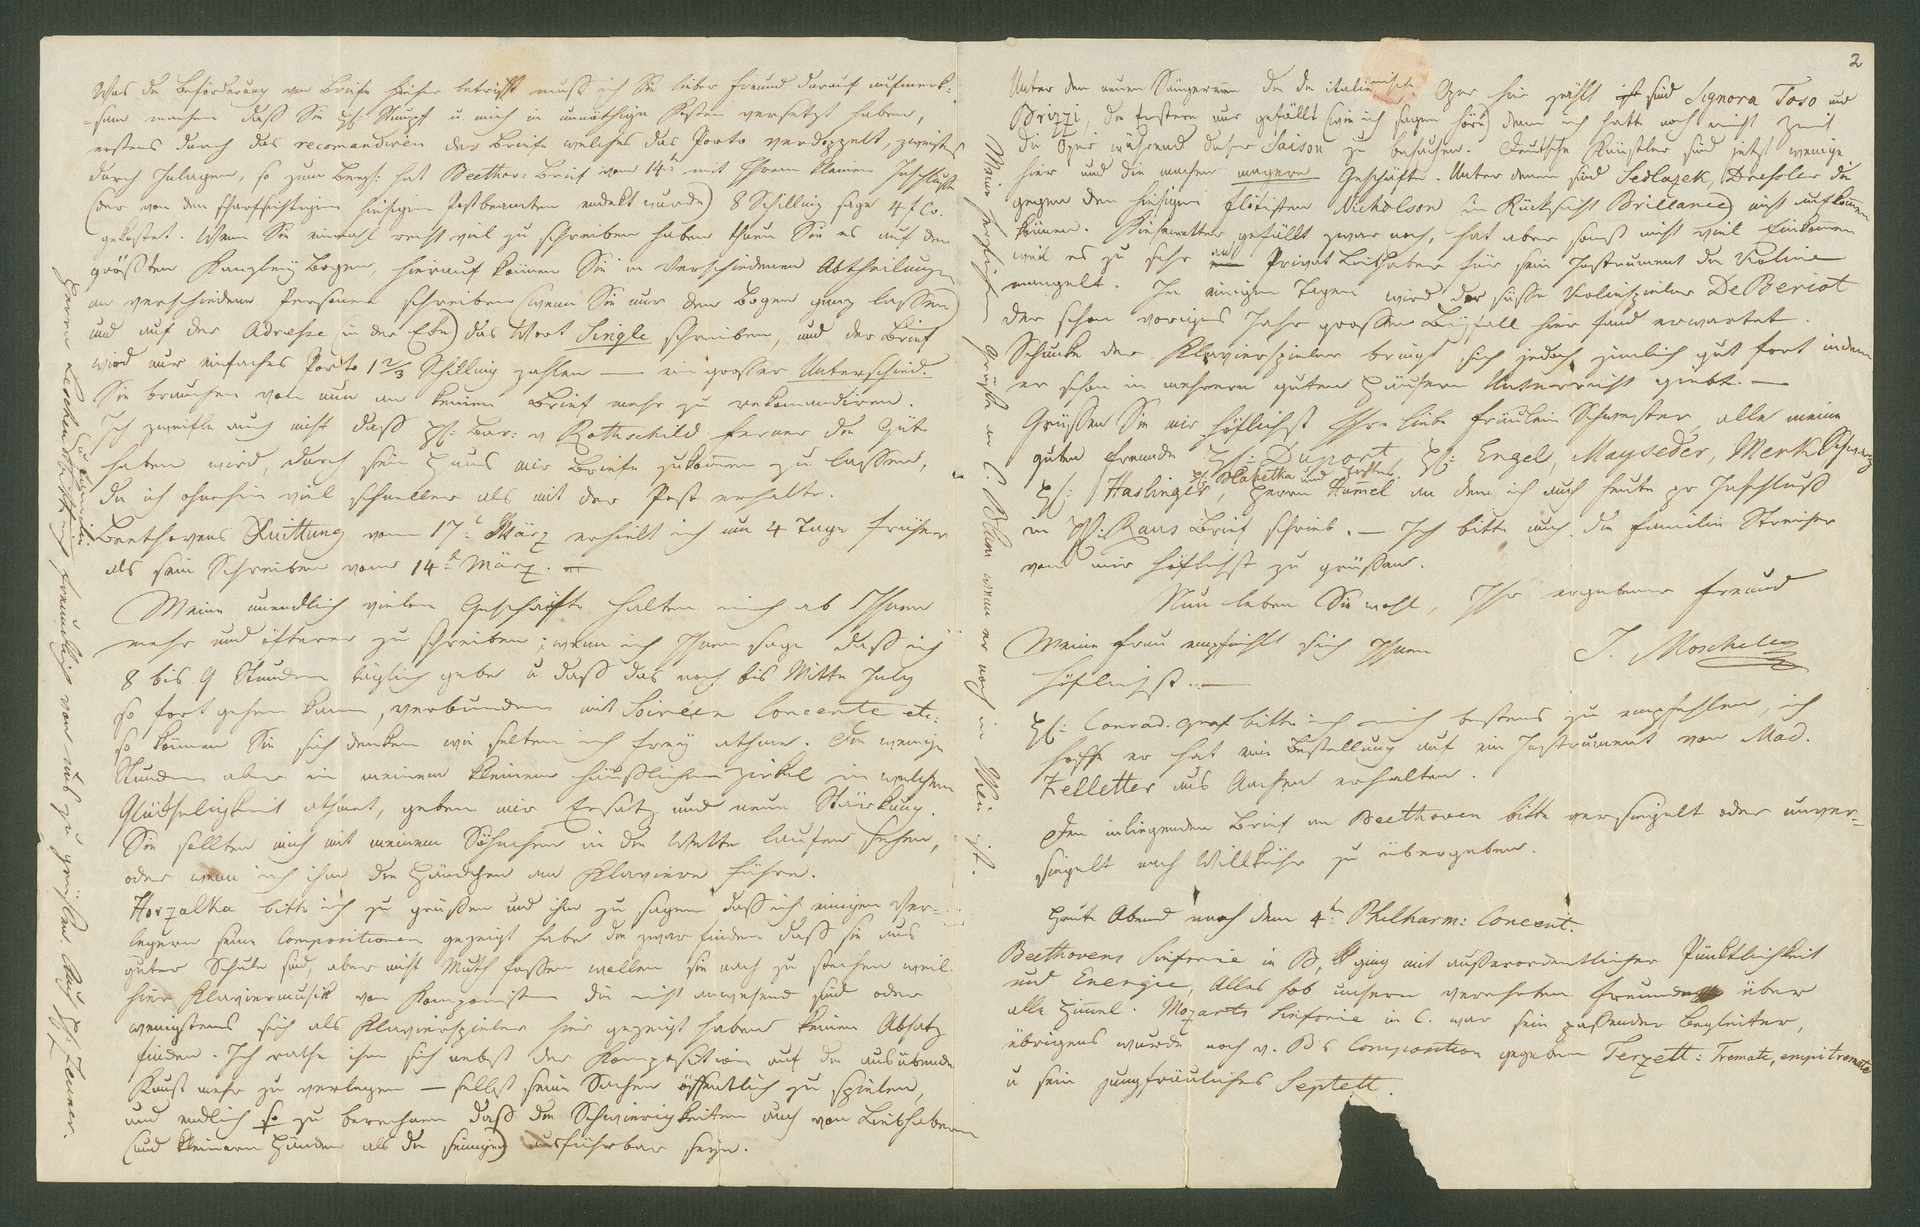 Was die Beförderung der Briefe hieher betrifft muß ich Sie lieber Freund darauf aufmerk=
=sam machen daß Sie H: Stumpf u. mich in unnöthige Kosten versetzt haben,
erstens durch das recomandiren der Briefe welches das Porto verdoppelt, zweitens
durch Zulagen, so zum Beysp: hat Beethov: Brief vom 14t: mit Ihrem kleinen Inschluße
(der von den scharfsichtigen hiesigen Postbeamten endekt wurde) 8 Schilling sage 4 f Co.
gekostet. Wenn Sie einmahl recht viel zu schreiben haben thuen Sie es auf den
größten Kanzley Bogen, hierauf können Sie in verschiedenen Abtheilungen
an verschiedene Personen schreiben (wenn Sie nur den Bogen ganz lassen)
und auf der Adresse (in der Eke) das Wort Single schreiben, und der Brief
wird nur einfaches Porto 1 2/3 Schilling zahlen — ein großer Unterschied.
Sie brauchen von nun an keinen Brief mehr zu rekomandiren.
Ich zweifle auch nicht daß H: Bar: v Rothschild ferner die Güte
haben wird, durch sein Haus mir Briefe zukomen zu lassen,
die ich ohnehin viel schneller als mit der Post erhalte.
Beethovens Quittung vom 17t: März erhielt ich um 4 Tage früher
als sein Schreiben vom 14t: März. —
Meine unendlich vielen Geschäfte halten mich ab Ihnen
mehr und öfterer zu schreiben; wenn ich Ihnen sage daß ich
8 bis 9 Stunden täglich gebe u daß das noch bis Mitte July
so fort gehen kann, verbunden mit Soiréen Concerte etc:
so können Sie sich denken wie selten ich frey athme. Die wenigen
Stunden aber in meinem kleinen häußlichen Zirkel in welchem
Glükseligkeit athmet, geben mir Ersatz und neue Stärkung.
Sie sollten mich mit meinem Söhnchen in die Wette laufen sehen,
oder wenn ich ihm die Händchen am Klaviere führe.
Horzalka bitte ich zu grüßen und ihm zu sagen daß ich einigen Ver=
legern seine Compositionen gezeigt habe die zwar finden daß sie aus
guter Schule sind, aber nicht Muth fassen wollen sie nach zu stechen weil
hier Klaviermusik von Komponisten die nicht anwesend sind oder
wenigstens sich als Klavierspieler hier gezeigt haben keinen Absatz
finden. Ich rathe ihm sich nebst der Komposition auf die ausübende
Kunst mehr zu verlegen — selbst seine Sachen öffentlich zu spielen,
und endlich so zu berechnen daß die Schwierigkeiten auch von Liebhabern
(und kleinern Händen als die seinigen) ausführbar seyn.
Herrn Leschen bitte freundlichst von uns zu grüßen. Auch H:
2
Unter den neuen Sängerinnen die die italienische Oper hier zählt ist sind Signora Toso und
Brizzi, die Erstere nur gefällt (wie ich sagen höre) denn ich hatte noch nicht Zeit
die Oper während dieser Saison zu besuchen. Deutsche Künstler sind jetzt wenige
hier und die machen magere Geschäfte. Unter denen sind Sedlazek, Drechsler die
gegen den hiesigen Flötisten Nicholson (in Rücksicht Brillance) nicht aufkomen
können. Kiesewetter gefällt zwar noch, hat aber sonst nicht viel Einkomen
weil es zu sehr an Privat Liebhaber für sein Instrument die Violine
mangelt. In einigen Tagen wird der süsse Violinspieler De Beriot
der schon voriges Jahr großen Beyfall hier fand erwartet.
Schunke der Klavierspieler bringt sich jedoch zimlich gut fort indem
er schon in mehrern guten Häusern Unterricht giebt. —
Grüssen Sie mir höflichst Ihre liebe Fräulein Schwester, alle meine
guten Freunde H: Duport, H: Engel, Mayseder, Merk Schwarz
H: Blahetka und Tochter
H: Haslinger, Herrn Hummel an den ich auch heute pr Inschluß
in H: Raus Brief schrieb. — Ich bitte auch die Familie Streicher
von mir höflichst zu grüßen.
Nun leben Sie wohl, Ihr ergebener Freund
J. Moscheles
Meine Frau empfiehlt sich Ihnen
höflichst. —
H: Conrad Graf bitte ich mich bestens zu empfehlen, ich
hoffe er hat eine Bestellung auf ein Instrument von Mad.
Zelletter aus Aachen erhalten.
Den inliegenden Brief an Beethoven bitte versiegelt oder unver=
siegelt nach Willkühr zu übergeben.
Heute Abend nach dem 4t: Philharm: Concert.
Beethovens Sinfonie in B, ging mit außerordentlicher Pünktlichkeit
und Energie, Alles hob unsern verehrten Freund über
alle Himel. Mozarts Sinfonie in C. war sein paßender Begleiter,
übrigens wurde noch v. B s Composition gegeben Terzett: Tremate, empi tremate
u sein jungfräuliches Septett.
Meine herzlichen Grüße an C. Blum wenn er noch in Wien ist.